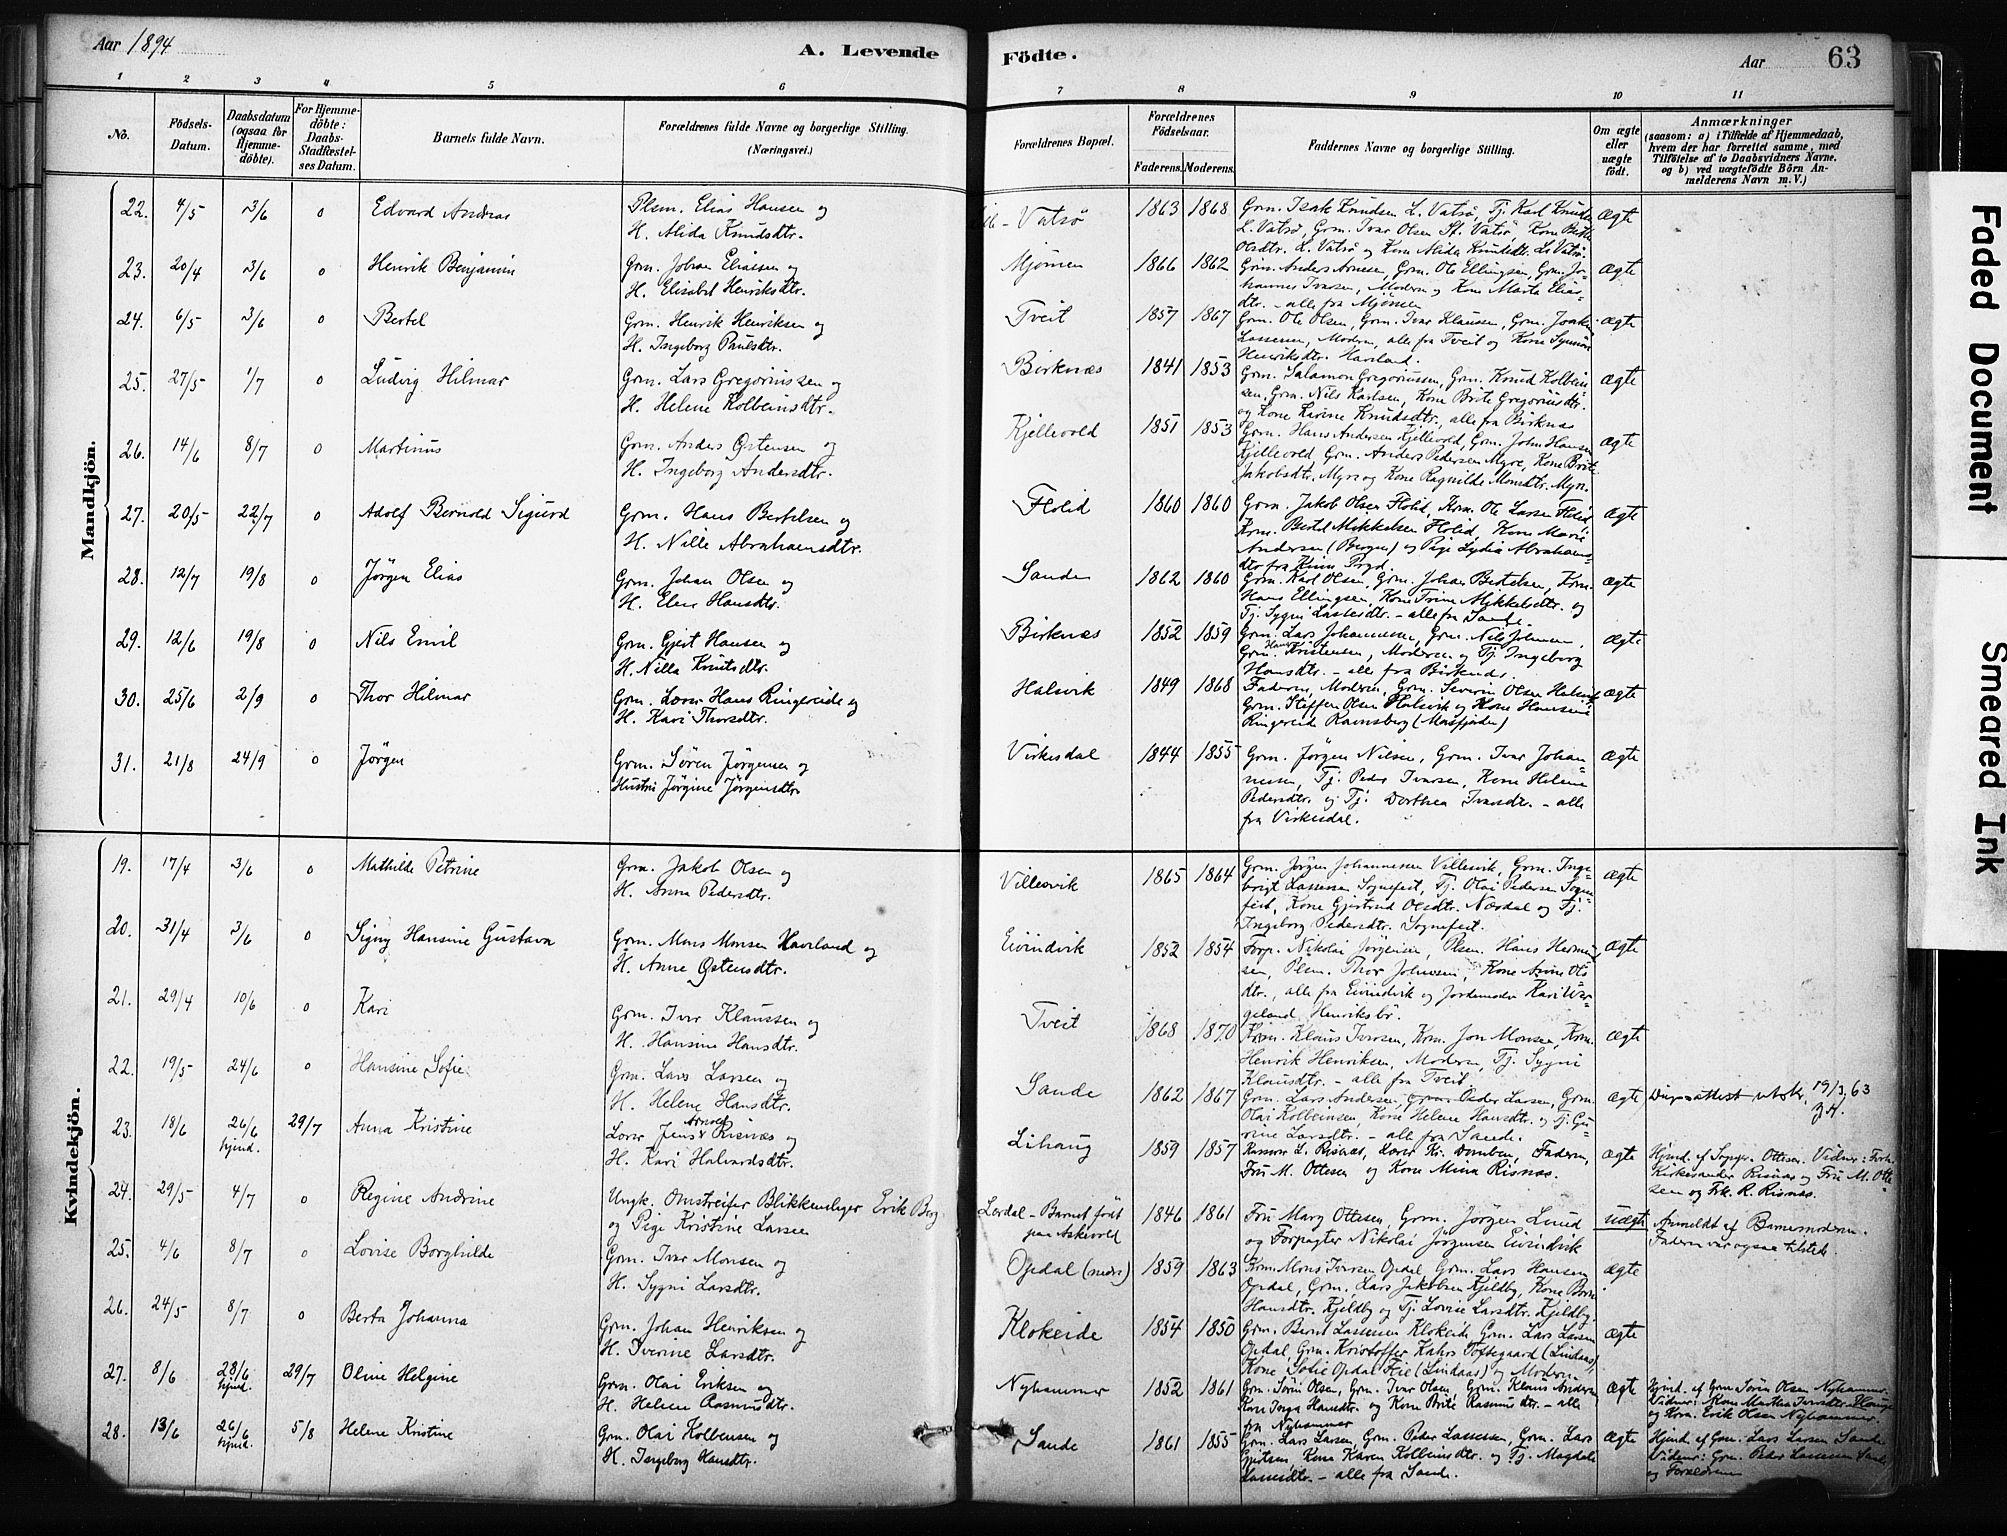 Aar 1894
A. Levende
Födte.
Aar
63
1 2 3 4 5 6 7 8 9 10 11
No.
Födsels-Datum.
Daabsdatum (ogsaa for Hjemme-döbte).
For Hjemme-döbte: Daabs-Stadfæstel-ses Datum.
Barnets fulde Navn.
Forældrenes fulde Navne og borgerlige Stilling. (Næringsvei.)
Forældrenes Bopæl.
Forældrenes Födselsaar.
Faderens. Moderens.
Faddernes Navne og borgerlige Stilling.
Om ægte eller uægte födt.
Anmærkninger
(saasom: a) i Tilfælde af Hjemmedaab, hvem der har forrettet samme, med Tilföielse af to Daabsvidners Navne. og b) ved uægtefödte Börn An-melderens Navn m. V.)
Mandkjön.
22. 4/5 3/6 o Edvard Andreas
Plsm. Elias Hansen og
H. Alida Knudsdtr.
Vatsø 1863 1868
Grm. Isak Knudsen L. Vatsø, Tj. Karl Knudsen
L. Vatsø, Grm. Ivar Olsen St. Vatsø, Kone Berthe
Olsdtr. L. Vatsø og Kone Alida Knudsdtr. L. Vatsø.
ægte
23. 20/4 3/6 o Henrik Benjamin
Grm. Johan Eliassen og
H. Elisabet Henriksdtr.
Mjømen 1866 1862
Grm. Anders Arnesen, Grm. Ole Ellingsen, Grm. Jo-
hannes Ivarsen, Moderen og Kone Marta Elias-
dtr. - alle fra Mjømen
ægte
24. 6/5 3/6 o Bertel
Grm. Henrik Henriksen og
H. Ingeborg Paulsdtr.
Tveit 1857 1867
Grm. Ole Olsen, Grm. Ivar Klausen, Grm. Joakim
Lassesen, Moderen, alle fra Tveit og Kone Synnøve
Henriksdtr. Haveland.
ægte
25. 27/5 1/7 o Ludvig Hilmar
Grm. Lars Gregoriussen og
H. Helene Kolbeinsdtr.
Birknæs 1841 1853
Grm. Salamon Gregoriussen, Grm. Knud Kolbein-
sen, Grm. Nils Karlsen, Kone Brite Gregoriusdtr.
og Kone Karine Knudsdtr., alle fra Birknæs
ægte
26. 14/6 8/7 o Martinus
Grm. Anders Østensen og
H. Ingeborg Andersdtr.
Kjellevold 1851 1853
Grm. Hans Andersen Kjellevold, Grm. John Hansen
Kjellevold, Grm. Anders Pedersen Myre, Kone Brite
Jakobsdtr. Myre og Kone Ragnilde Monsdtr. Myre.
ægte
27. 20/5 22/7 o Adolf Bernold Sigurd
Grm. Hans Bertelsen og
H. Nille Abrahamsdtr.
Flolid 1860 1860
Grm. Jakob Olsen Flolid, Krm. Ole Larsen Flolid,
Krm. Bertel Mikkelsen Flolid, Kone Marie
Andersen (Bergen) og Pige Lydia Abrahams-
dtr fra Kinn Prgd.
ægte
28. 12/7 19/8 o Jörgen Elias
Grm. Johan Olsen og
H. Elen Hansdtr.
Sande 1862 1860
Grm. Karl Olsen, Grm. Johan Bertelsen, Krm.
Hans Ellingsen, Kone Trine Mikkelsdtr. og
Tj. Sygni Lassesdtr. - alle fra Sande.
ægte
29. 12/6 19/8 o Nils Emil
Grm. Gjert Hansen og
H. Nilla Knutsdtr.
Birknæs 1852 1859
Grm. Lars Johannessen, Grm. Nils Johnsen,
Grm. Hans Kristensen, Moderen og Tj. Ingeborg
Hansdtr. - alle fra Birknæs.
ægte
30. 25/6 2/9 o Thor Hilmar
Grm. Lærer Hans Ringereide og
H. Kari Thorsdtr.
Halsvik 1849 1868
Faderen, Moderen, Grm. Severin Olsen Halsvik,
Grm. Steffen Olsen Halsvik og Kone Hansine
Ringereide Ravnsberg (Masfjorden)
ægte
31. 21/8 24/9 o Jörgen
Grm. Søren Jørgensen og
Hustru Jørgine Jørgensdtr
Virkesdal 1844 1855
Grm. Jørgen Nilsen, Grm. Ivar Johan-
nessen, Tj. Peder Ivarsen, Kone Helene
Pedersdtr. og Tj. Dorthea Ivarsdtr. - alle
fra Virkesdal.
ægte
Kvindekjön.
19. 17/4 3/6 o Mathilde Petrine
Grm. Jakob Olsen og
H. Anna Pedersdtr.
Villesvik 1865 1864
Grm. Jørgen Johannessen Villesvik, Grm. Inge-
brigt Lassesen Sognefest, Tj. Olai Pedersen Sogne-
fest, Kone Gjertrud Olsdtr. Nærdal og Tj.
Ingeborg Pedersdtr. Sognefest.
ægte
20. 31/4 3/6 o Signy Hansine Gustava
Grm. Mons Monsen Haveland og
H. Anne Østensdtr.
Eivindvik 1852 1854
Forp. Nikolai Jørgensen, Plsm. Hans Herman-
sen, Plsm. Thor Johnsen, Kone Anne Ols-
dtr., alle fra Eivindvik og Jordemoder Kari Wer-
geland Henriksbø.
ægte
21. 29/4 10/6 o Kari
Grm. Ivar Klaussen og
H. Hansine Hansdtr.
Tveit 1868 1870
Krm. Klaus Ivarsen, Krm. Jon Monsen, Krm.
Henrik Henriksen, Moderen, Tj. Sygni
Klausdtr. - alle fra Tveit
ægte
22. 19/5 24/6 o Hansine Sofie
Grm. Lars Larsen og
H. Helene Hansdtr.
Sande 1862 1867
Grm. Lars Andersen, Grm. Peder Larsen, Grm.
Olai Kolbeinsen, Kone Helene Hansdtr. og Tj. Gu-
rine Larsdtr. - alle fra Sande.
ægte
Dåpsattest utst. 19/3 63
23. 18/6 26/6 hjmd. 29/7 Anna Kristine
Lærer Jens Arnold Risnæs og
H. Kari Halvardsdtr.
Lihaug 1859 1857
Rasmus L. Risnæs, Lærer Kr. Domben, Faderen,
Fru M. Ottesen og Kone Mina Risnæs.
ægte
Hjmd. af Sogpr. Ottesen. Vidner: Forh.
Kirkesanger Risnæs og Fru M. Otte-
sen og Frk. R. Risnæs.
24. 29/5 4/7 o Regine Andrine
Ungk. Omstreifer Blikkenslager Erik Berg
og Pige Kristine Larsen
Lærdal - Barnet födt
paa Askevold
1846 1861
Fru Marg Ottesen, Grm. Jörgen Lund
og Forpagter Nikolai Jörgensen Eivindvik
uægte
Anmeldt af Barnemoderen.
Faderen var ogsaa tilstede.
25. 4/6 8/7 o Lovise Borghilde
Grm. Ivar Monsen og
H. Sygni Larsdtr.
Opdal (nedre) 1859 1863
Krm. Mons Ivarsen Opdal, Grm. Lars Hansen
Opdal, Grm. Lars Jakobsen Kjeldby, Kone Berte
Hansdtr. Kjeldby og Tj. Lovise Larsdtr. Kjeldby.
ægte
26. 24/5 8/7 o Berta Johanna
Grm. Johan Henriksen og
H. Iverine Larsdtr.
Klokeide 1854 1850
Grm. Bernt Lassesen Klokeide, Grm. Lars Larsen
Opdal, Grm. Kristoffer Kahrs Toftegaard (Lindaas),
Kone Sofie Opdal Feie (Lindaas) og Moderen.
ægte
27. 8/6 28/6 hjmd. 29/7 Oline Helgine
Grm. Olai Eriksen og
H. Helene Rasmusdtr.
Nyhammer 1852 1861
Grm. Sörin Olsen, Grm. Ivar Olsen, Grm. Klaus Andersen,
Kone Inga Hansdtr. og Kone Brite Rasmusdtr. - alle
fra Nyhammer
ægte
Hjmd. af Grm Sörin Olsen Nyhammer.
Vidner: Kone Marthe Iversdtr. Hauge
og Krm. Erik Olsen Nyhammer.
28. 13/6 26/6 hjmd. 5/8 Helene Kristine
Grm. Olai Kolbensen og
H. Ingeborg Hansdtr.
Sande 1861 1855
Grm. Lars Larsen, Grm. Peder Lassesen, Grm. Lars
Gjertsen, Kone Karen Kolbeinsdtr. og Tj. Magdale
Lassesdtr. - alle fra Sande.
ægte
Hjmd. af Grm. Lars Larsen Sande
Vidner: Grm. Peder Lassesen Sande
og Forældrene
Faded Document
Smeared Ink